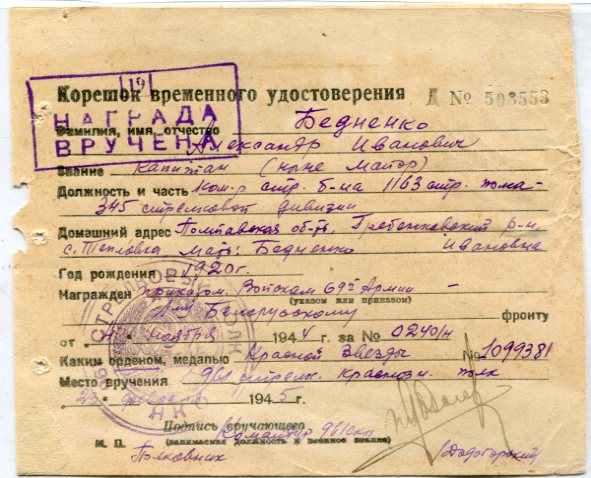 19
НАГРАДА
ВРУЧЕНА
Корешок временного удостоверения Д № 508553
Фамилия, имя, отчество Бедненко
Александр Иванович
Звание капитан (ныне майор)
Должность и часть Ком-р стр. б-на 1163 стр. полка
345 стрелковой дивизии
Домашний адрес Полтавская об-ть Гребенковский р-н
с. Тепловка мать: Бедненко Ивановна
Год рождения 1920 г.
Награжден приказом Войскам 69й Армии
(указом или приказом)
1му Белорусскому фронту
от ноября 1944 г. за № 0240/н
Каким орденом, медалью Красной Звезды № 1099381
Место вручения 961 стрелк. краснозн. полк
23 февраля 1945 г.
Подпись вручающего
Командир 961 скп
М. П. (занимаемая должность и военное звание)
Полковник